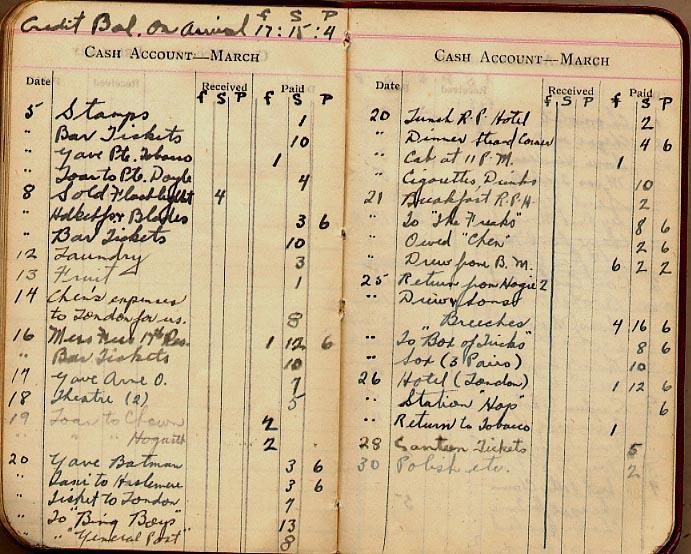 £ S P
Credit Bal. On Arrival 17:15:4
CASH ACCOUNT—MARCH
Date Received Paid
£ S P £ S P
5 Stamps 1
" Bar Tickets 10
" Gave Pte. Tobacco 1
" Loan to Pte. Doyle 4
8 Sold Flashlight 4
" Hdkcf for Blades 3 6
" Bar Tickets 10
12 Laundry 3
13 Fruit 1
14 Chen's expenses
to London for us. 8
16 Mess 1 12 6
" Bar Tickets 10
17 Gave 7
18 Theatre (2) 5
19 Loan to Chown 2
" " Hogarth 2
20 Gave Batman 3 6
" Taxi to Haslemere 3 6
" Ticket to London 7
" To "Bing Boys" 13
" " "General Post" 8
CASH ACCOUNT—MARCH
Date Received Paid
£ S P £ S P
20 Lunch R.P. Hotel 2
" Dinner Strand Corner 4 6
" Cab at 11 P.M. 1
" Cigarettes, Drinks 10
21 Breakfast R.P.H. 2
" To "The Freaks" 8 6
" Owed "Chen" 2 6
" Drew from B.M. 6 2 2
25 Return from Hogie 2
" Drew
" Breeches 4 16 6
" To "Box of Tricks" 8 6
" Sox (3 Pairs) 10
26 Hotel (London) 1 12 6
" Station "Hop" 6
" Return to Tobacco 1
28 Canteen Tickets 5
30 Polish etc. 2